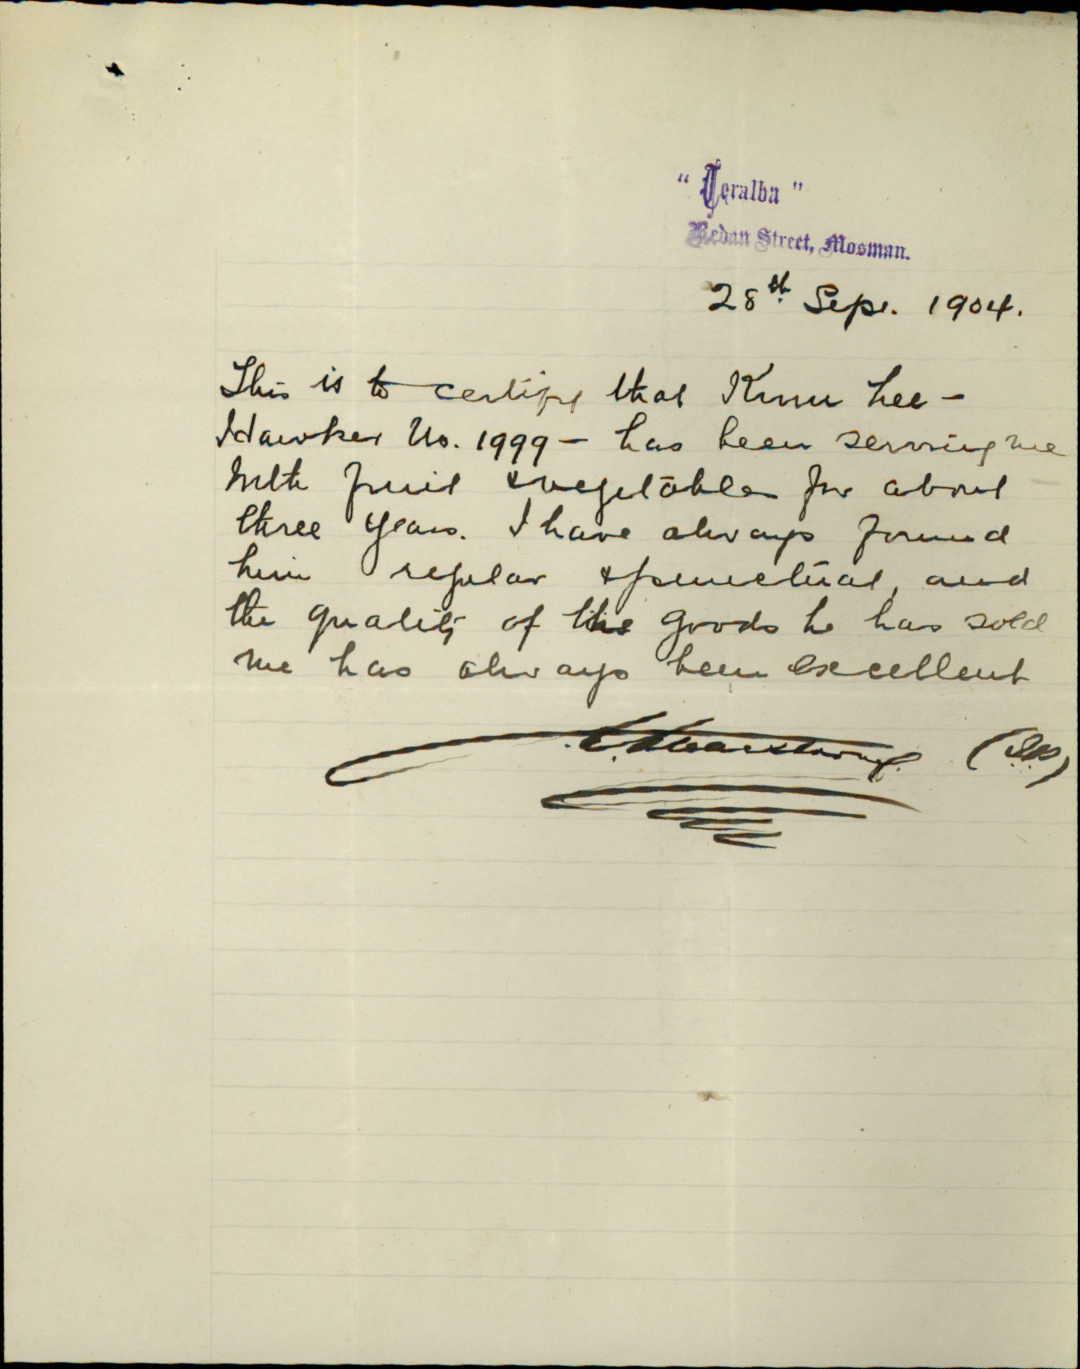 "Teralba"
Redan Street, Mosman.
28th Sepr. 1904.
This is to certify that Kum Lee –
Hawker No. 1999 – has been serving me
with fruit & vegetables for about
three years. I have always found
him regular & punctual, and
the quality of the goods he has sold
me has always been excellent
(J.P.)